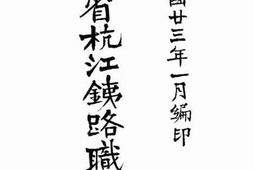 國廿三年一月編印
省杭江鐵路職